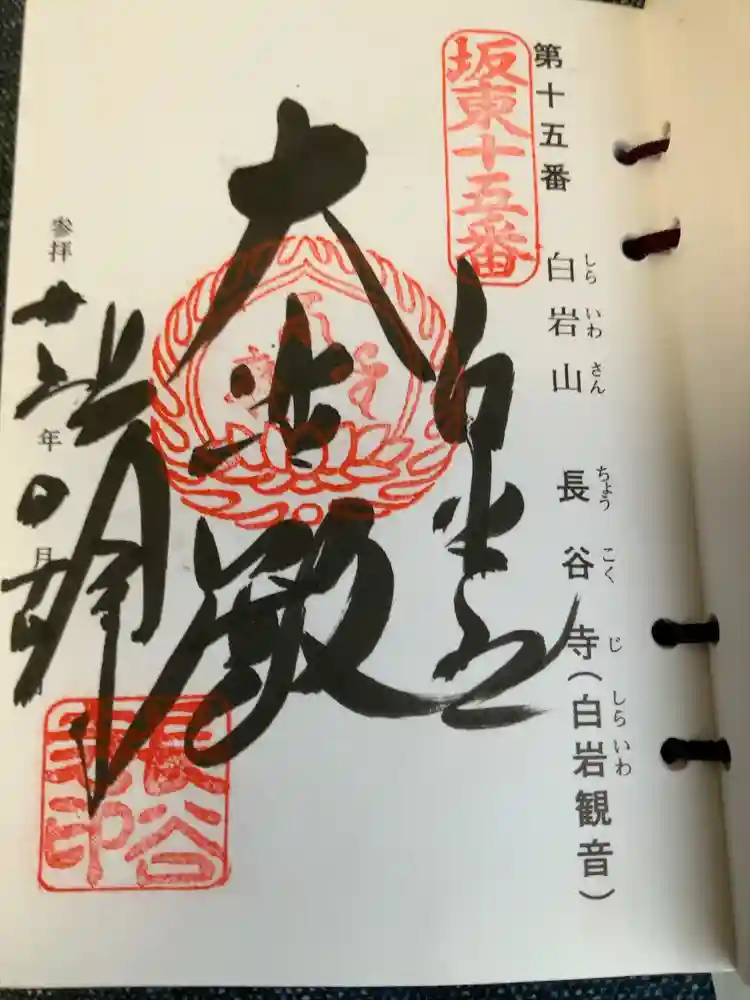 第十五番 白岩山 長谷寺(白岩観音)
しらいわさん ちょうこくじ しらいわ
坂東十五番
白岩山
大悲殿
長谷寺
参拝 年 月
長谷
寺印